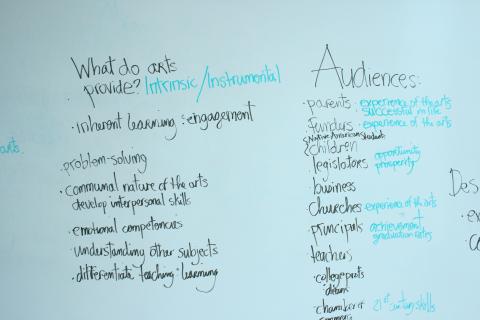 What do arts
provide? Intrinsic/Instrumental
• inherent learning : engagement
arts.
• problem-solving
• communal nature of the arts
develop interpersonal skills
• emotional competencies
• understanding other subjects
• differentiate teaching : learning
Audiences:
• parents • experience of the arts
successful in life
funders • experience of the arts
Native American students
children
legislators opportunity
prosperity
• business
churches experience of the arts
principals achievement
graduation rates
teachers
• college profs
deans
chamber of 21st century skills
commerce
Des